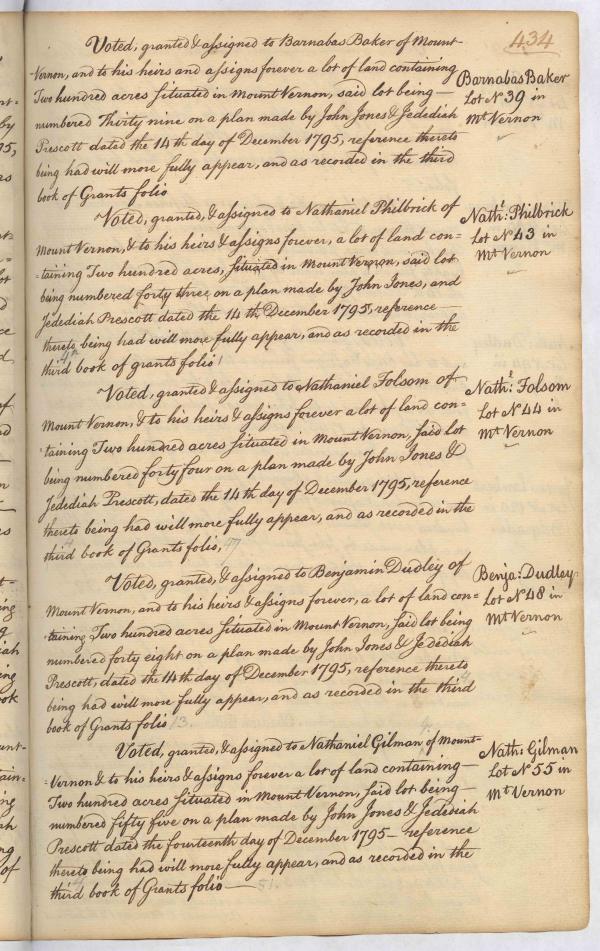 434
Voted, granted & assigned to Barnabas Baker of Mount-
Vernon, and to his heirs and assigns forever a lot of land containing
Two hundred acres situated in Mount Vernon, said lot being—
numbered Thirty nine on a plan made by John Jones & Jedediah
Prescott dated the 14th day of December 1795, reference thereto
being had will more fully appear, and as recorded in the third
book of Grants folio
Barnabas Baker
Lot No 39 in
Mt Vernon
Voted, granted, & assigned to Nathaniel Philbrick of
Mount Vernon, & to his heirs & assigns forever, a lot of land con=
=taining Two hundred acres, situated in Mount Vernon, said lot
being numbered forty three on a plan made by John Jones, and
Jedediah Prescott dated the 14th December 1795, reference—
thereto being had will more fully appear, and as recorded in the
third book of grants folio
Nathl: Philbrick
Lot No 43 in
Mt Vernon
Voted, granted & assigned to Nathaniel Folsom of
Mount Vernon, & to his heirs & assigns forever a lot of land con=
=taining Two hundred acres situated in Mount Vernon, said lot
being numbered forty four on a plan made by John Jones &
Jedediah Prescott, dated the 14th day of December 1795, reference
thereto being had will more fully appear, and as recorded in the
third book of Grants folio, 47
Nathl: Folsom
Lot No 44 in
Mt Vernon
Voted, granted, & assigned to Benjamin Dudley of
Mount Vernon, and to his heirs & assigns forever, a lot of land con=
=taining Two hundred acres situated in Mount Vernon, said lot being
numbered forty eight on a plan made by John Jones & Jedediah
Prescott, dated the 14th day of December 1795, reference thereto
being had will more fully appear, and as recorded in the third
book of Grants folio 13.
Benja: Dudley
Lot No 48 in
Mt Vernon
Voted, granted, & assigned to Nathaniel Gilman of Mount-
=Vernon & to his heirs & assigns forever a lot of land containing—
Two hundred acres situated in Mount Vernon, said lot being—
numbered fifty five on a plan made by John Jones & Jedediah
Prescott dated the fourteenth day of December 1795— reference
thereto being had will more fully appear, and as recorded in the
third book of Grants folio— 51.
Nathl: Gilman
Lot No 55 in
Mt Vernon